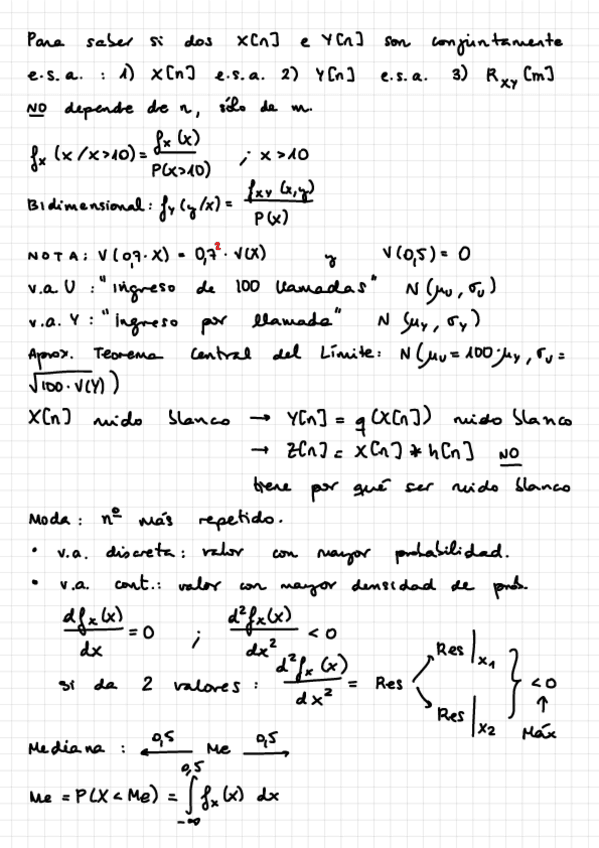 Para saber si dos X[n] e Y[n] son conjuntamente
e.s.a. : 1) X[n] e.s.a. 2) Y[n] e.s.a. 3) R_XY[m]
NO depende de n, sólo de m.
f_X (x/x>10) = f_X(x) / P(x>10) ; x>10
Bidimensional: f_Y(y/x) = f_XY(x,y) / P(x)
NOTA: V(0,7·X) = 0,7²·V(X) y V(0,5) = 0
v.a U : "ingreso de 100 llamadas" N(μ_U, σ_U)
v.a. Y : "ingreso por llamada" N(μ_Y, σ_Y)
Aprox. Teorema Central del Límite: N(μ_U = 100·μ_Y, σ_U =
√100·V(Y))
X[n] ruido blanco → Y[n] = g(X[n]) ruido blanco
→ Z[n] = X[n] * h[n] NO
tiene por qué ser ruido blanco
Moda: nº más repetido.
• v.a. discreta: valor con mayor probabilidad.
• v.a. cont.: valor con mayor densidad de prob.
df_X(x)/dx = 0 ; d²f_X(x)/dx² < 0
si da 2 valores : d²f_X(x)/dx² = Res Res|x₁ Res|x₂ } < 0
↑
Máx
Mediana : ←0,5 Me 0,5→
Me = P(X < Me) = ∫_{-∞}^{0,5} f_X(x) dx